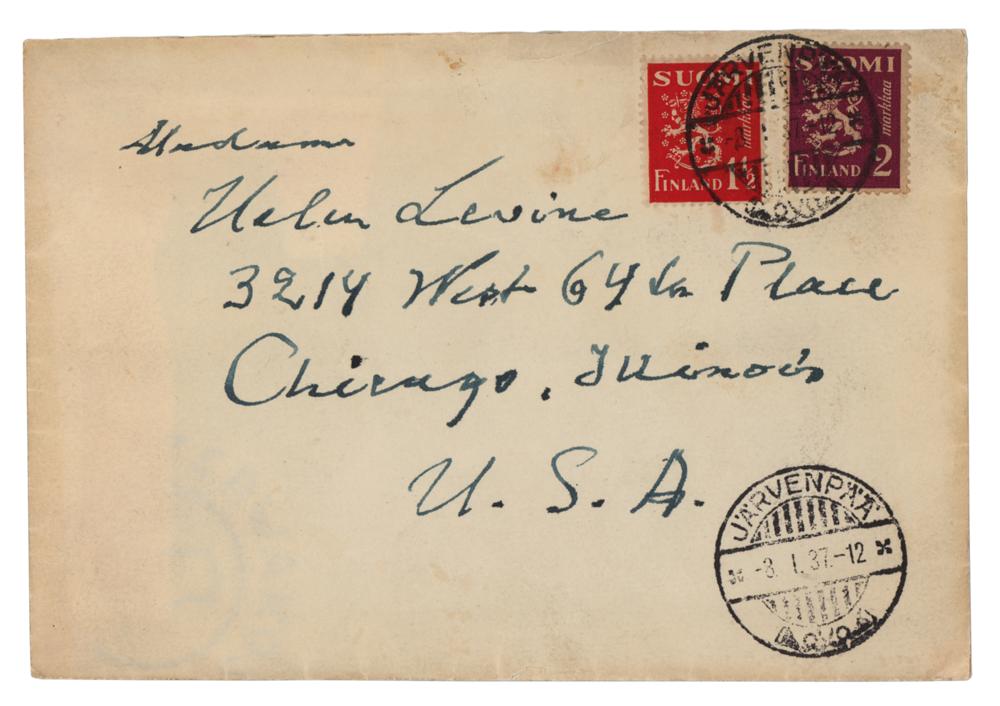 SUOMI
markkaa
FINLAND 1½
SUOMI
markkaa
FINLAND 2
JÄRVENPÄÄ
Madame
Helen Levine
3214 West 64th Place
Chicago, Illinois
U. S. A.
JÄRVENPÄÄ
-8. I. 37.-12